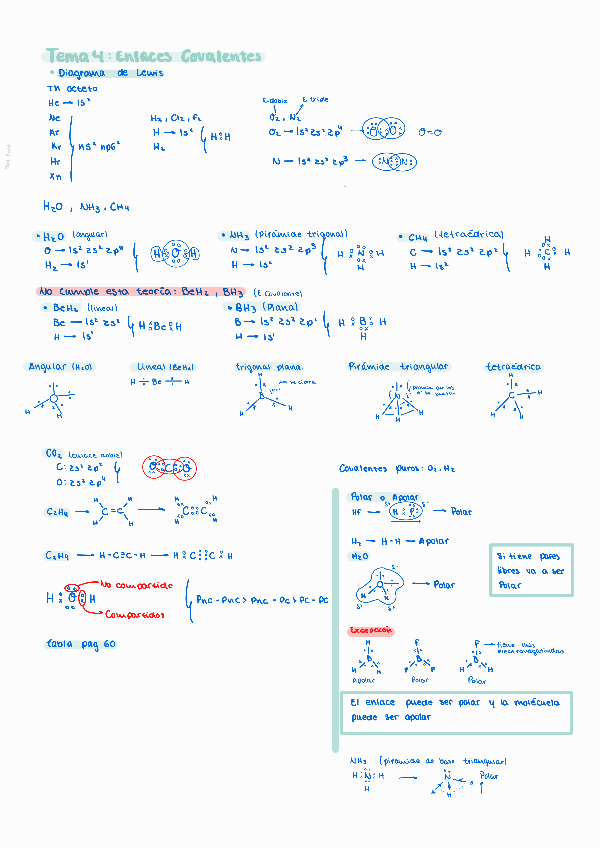 Tema 4: Enlaces Covalentes
• Diagrama de Lewis
TH octeto
He → 1s²
Ne
Ar
Kr ns² np6²
Hr
Xn
H₂, Cl₂, F₂
H → 1s²
H₂
H H
E. doble E. triple
O₂, N₂
O₂ → 1s² 2s² 2p⁴ O O O=O
N → 1s² 2s² 2p³ → N N
H₂O, NH₃, CH₄
• H₂O (angular)
O → 1s² 2s² 2p⁴
H₂ → 1s¹
H O H
• NH₃ (Pirámide trigonal)
N → 1s² 2s² 2p³
H → 1s²
H N H
H
• CH₄ (tetraédrica)
C → 1s² 2s² 2p²
H → 1s²
H
H C H
H
No cumple esta teoría: BeH₂, BH₃ (E. Covalente)
• BeH₂ (lineal)
Be → 1s² 2s²
H → 1s¹
H Be H
• BH₃ (Plana)
B → 1s² 2s² 2p¹
H → 1s¹
H B H
H
Angular (H₂O)
O
H H
Lineal (BeH₂)
H Be H
trigonal plana
H
B
H H
Pirámide triangular
N
H H H
tetraédrica
H
C H
H H
CO₂ (enlace doble)
C: 2s² 2p²
O: 2s² 2p⁴
O C O
C₂H₄ → H H C=C H H → H H C C H H
C₂H₄ → H-C≡C-H → H C C H
H O H
No compartido
Compartidos
Pnc - Pnc > Pnc - Pc > Pc - Pc
tabla pag 60
Covalentes puros: O₂, H₂
Polar o Apolar
HF → H F → Polar
H₂ → H-H → Apolar
H₂O
O
H H
→ Polar
Si tiene pares
libres va a ser
Polar
Excepción
H
B
H H
Apolar
F
B
F F
Polar
F → tiene más
electronegatividad
B
H H
Polar
El enlace puede ser polar y la molécula
puede ser apolar
NH₃ (pirámide de base triangular)
H N H
H
→ N
H
Polar